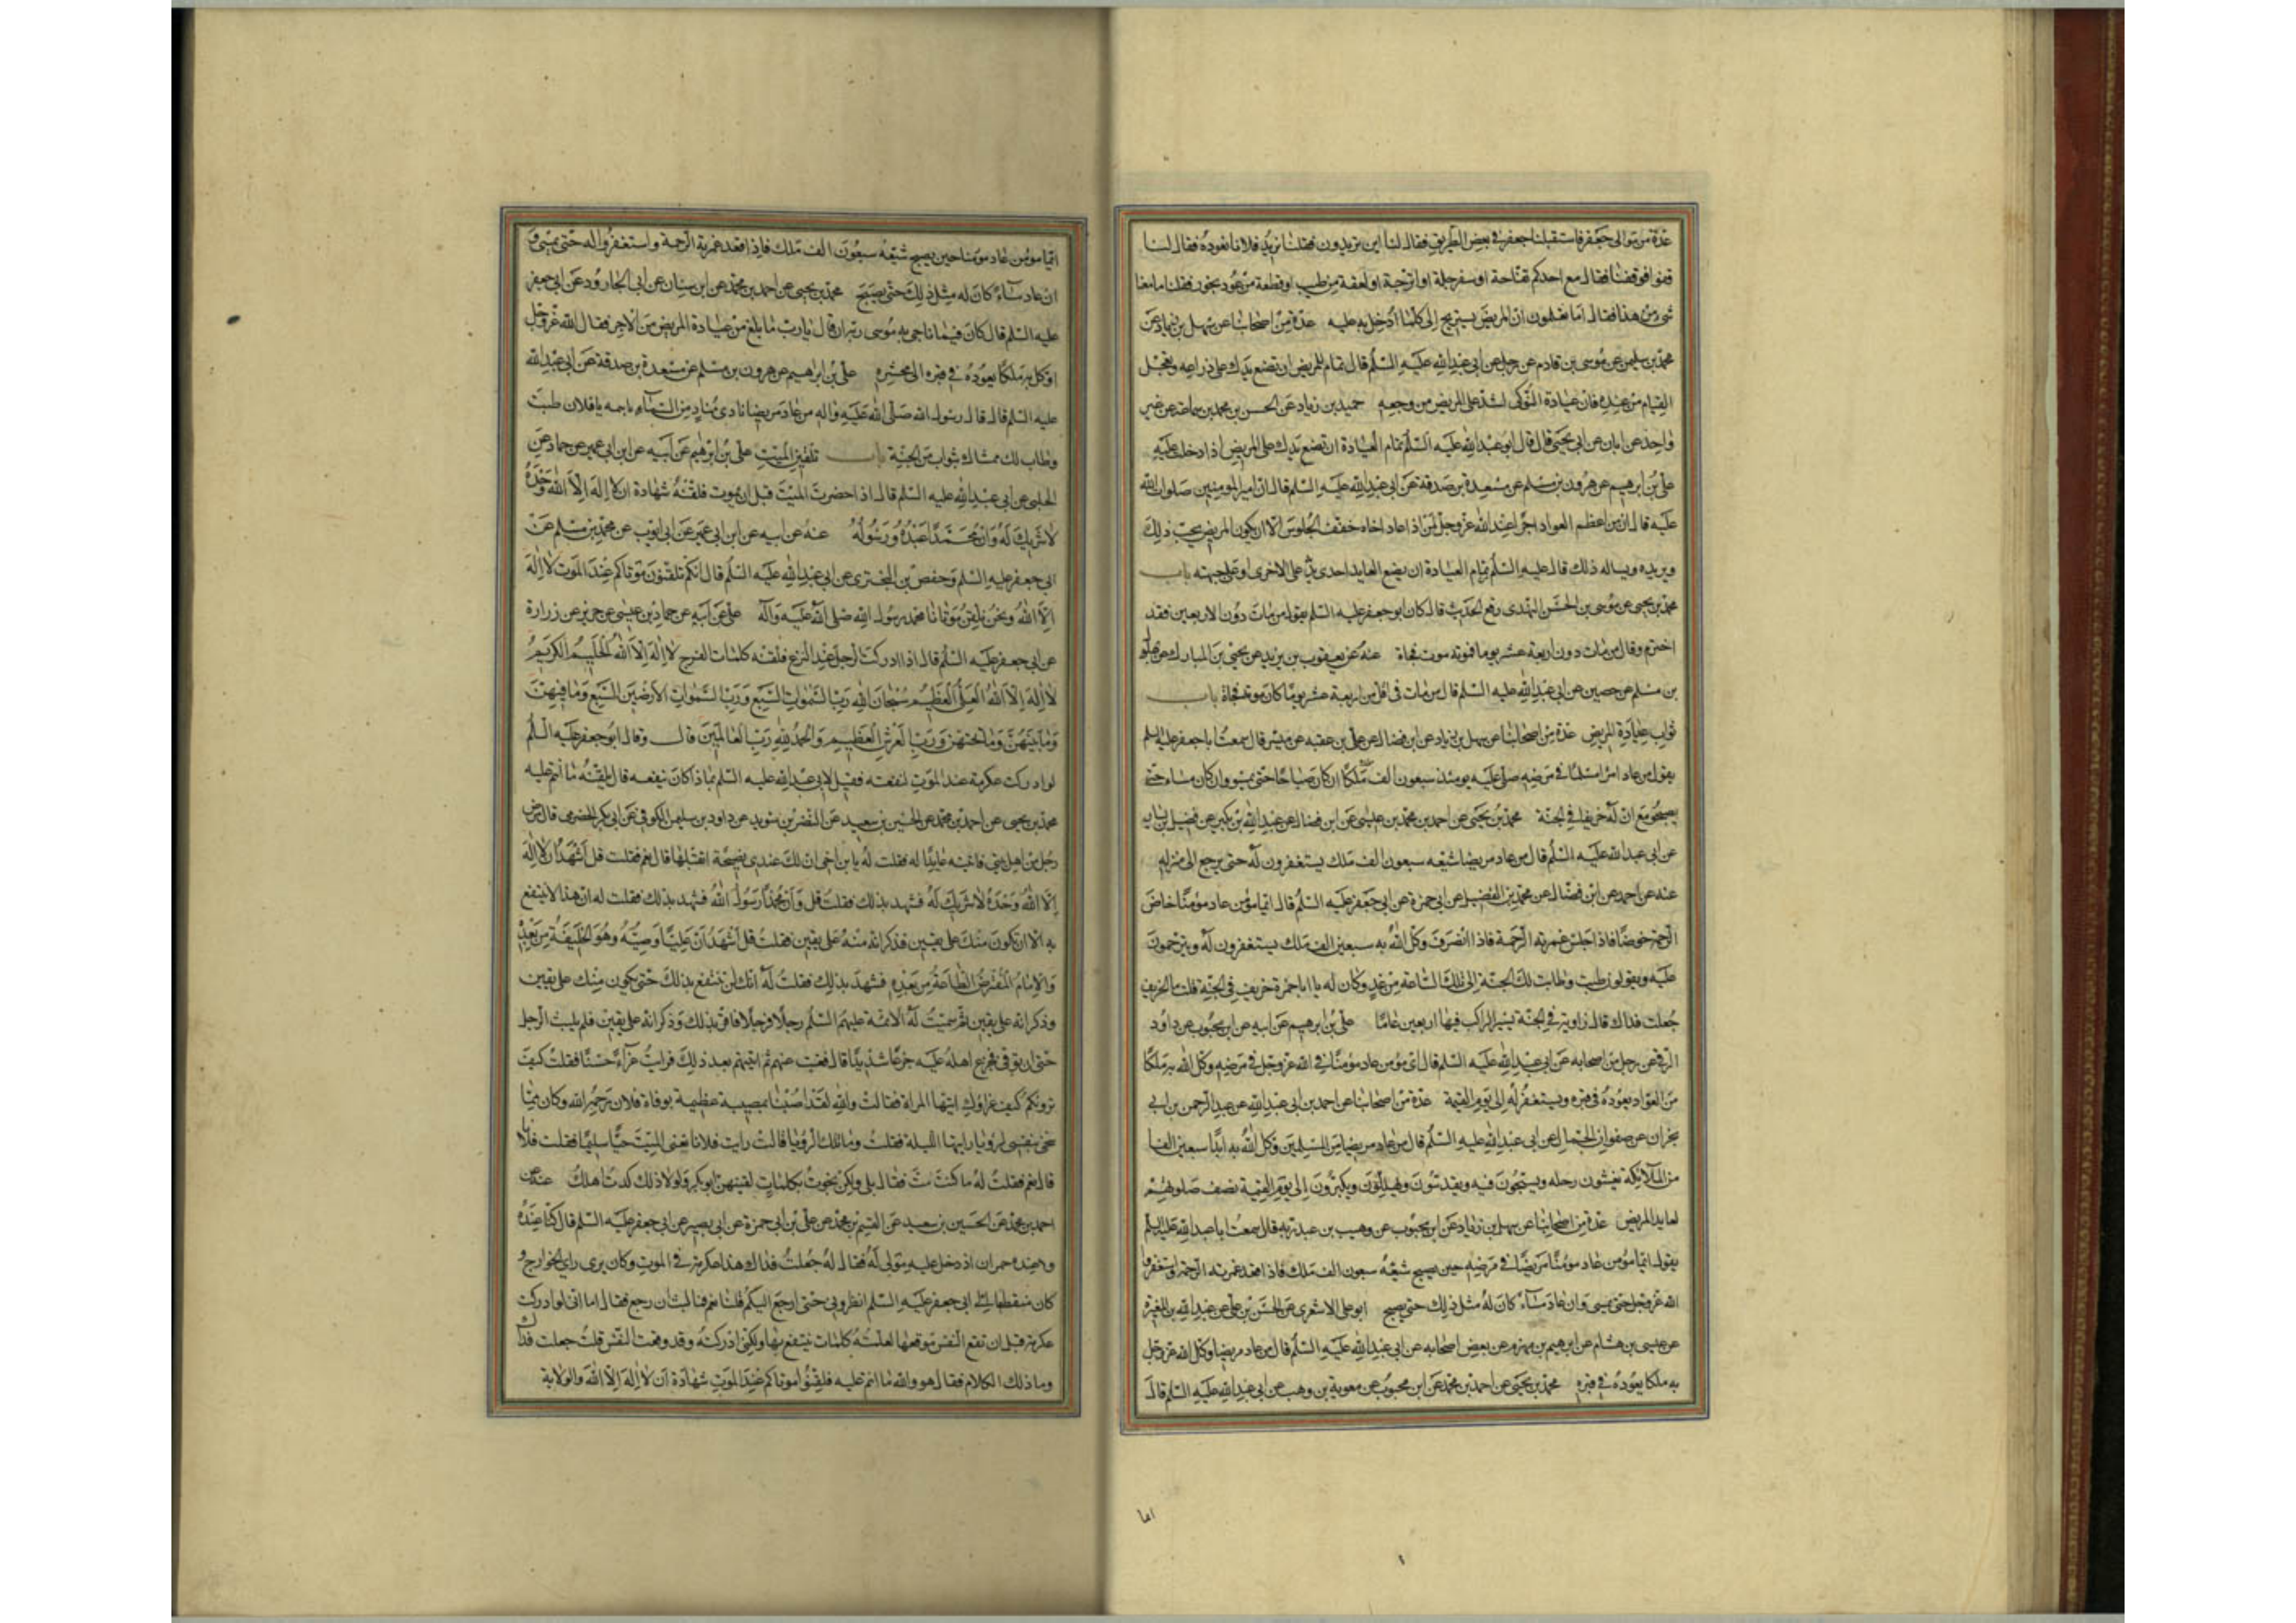 عدة من موالى جعفر فاستقبلنا جعفر فى بعض الطريق فقال لنا اين تريدون فقلنا نريد فلانا نعوده فقال لنا
قفوا فوقفنا فقال مع احدكم تفاحة او سفرجلة او اترجة او لعقة من طيب او قطعة من عود بخور فقلنا ما معنا
شئ من هذا فقال اما تعلمون ان المريض يستريح الى كلما ادخل به عليه عدة من اصحابنا عن سهل بن زياد عن
محمد بن سليمن عن موسى بن قادم عن رجل عن ابى عبد الله عليه السلم قال تمام للمريض ان تضع يدك على ذراعه وتعجل
القيام من عنده فان عيادة النوكى اشد على المريض من وجعه حميد بن زياد عن الحسن بن محمد بن سماعة عن غير
واحد عن ابان عن ابى يحيى قال قال ابو عبد الله عليه السلم تمام العيادة ان تضع يدك على المريض اذا دخلت عليه
على بن ابرهيم عن هرون بن مسلم عن مسعدة بن صدقة عن ابى عبد الله عليه السلم قال ان امير المومنين صلوات الله
عليه قال ان من اعظم العواد اجرا عند الله عز وجل لمن اذا عاد اخاه خفف الجلوس الا ان يكون المريض يحب ذلك
ويريده ويساله ذلك قال عليه السلم تمام العيادة ان يضع العايد احدى يديه على الاخرى او على جبهته باب
محمد بن يحيى عن موسى بن الحسن النهدى رفع الحديث قال كان ابو جعفر عليه السلم يقول من مات دون الاربعين فقد
اخترم وقال من مات دون اربعة عشر يوما فموته موت فجاة عنه عن يعقوب بن يزيد عن يحيى بن المبارك عن بهلول
بن مسلم عن حصين عن ابى عبد الله عليه السلم قال من مات فى اقل من اربعة عشر يوما كان موته فجاة باب
ثواب عيادة المريض عدة من اصحابنا عن سهل بن زياد عن ابن فضال عن على بن عقبه عن ميسر قال سمعت ابا جعفر عليه السلم
يقول من عاد امرا مسلما فى مرضه صلى عليه يومئذ سبعون الف ملكا ان كان صباحا حتى يمسوا وان كان مساء حتى
يصبحوا مع ان له خريفا فى الجنة محمد بن يحيى عن احمد بن محمد بن عيسى عن ابن فضال عن عبد الله بن بكير عن فضيل بن يسار
عن ابى عبد الله عليه السلم قال من عاد مريضا شيعه سبعون الف ملك يستغفرون له حتى يرجع الى منزله
عنه عن احمد عن ابن فضال عن محمد بن الفضيل عن ابى حمزة عن ابى جعفر عليه السلم قال ايما مؤمن عاد مؤمنا خاض
الرحمة خوضا فاذا جلس غمرته الرحمة فاذا انصرف وكل الله به سبعين الف ملك يستغفرون له ويترحمون
عليه ويقولون طبت وطابت لك الجنة الى تلك الساعة من غد وكان له يا ابا حمزة خريف فى الجنة قلت ما الخريف
جعلت فداك قال زاوية فى الجنة يسير الراكب فيها اربعين عاما على بن ابرهيم عن ابيه عن ابن محبوب عن داود
الرقى عن رجل من اصحابه عن ابى عبد الله عليه السلم قال اى مؤمن عاد مؤمنا فى الله عز وجل فى مرضه وكل الله به ملكا
من العواد يعوده فى قبره ويستغفر له الى يوم القيمة عدة من اصحابنا عن احمد بن ابى عبد الله عن عبد الرحمن بن ابى
نجران عن صفوان الجمال عن ابى عبد الله عليه السلم قال من عاد مريضا من المسلمين وكل الله به ابدا سبعين الفا
من الملائكة يغشون رحله ويسبحون فيه ويقدسون ويهللون ويكبرون الى يوم القيمة نصف صلوتهم
لعايد المريض عدة من اصحابنا عن سهل بن زياد عن ابن محبوب عن وهيب بن عبد ربه قال سمعت ابا عبد الله عليه السلم
يقول ايما مؤمن عاد مؤمنا مريضا فى مرضه حين يصبح شيعه سبعون الف ملك فاذا اقعد غمرته الرحمة واستغفروا
الله عز وجل حتى يمسى وان عاد مساء كان له مثل ذلك حتى يصبح ابو على الاشعرى عن الحسن بن على عن عبد الله بن المغيرة
عن عبيس بن هشام عن ابرهيم بن مهزم عن بعض اصحابه عن ابى عبد الله عليه السلم قال من عاد مريضا وكل الله عز وجل
به ملكا يعوده فى قبره محمد بن يحيى عن احمد بن محمد عن ابن محبوب عن معوية بن وهب عن ابى عبد الله عليه السلم قال
ايما
ايما مؤمن عاد مومنا حين يصبح شيعه سبعون الف ملك فاذا قعد غمرته الرحمة واستغفروا له حتى يمسى و
ان عاد مساء كان له مثل ذلك حتى يصبح محمد بن يحيى عن احمد بن محمد عن ابن سنان عن ابى الجارود عن ابى جعفر
عليه السلم قال كان فيما ناجى به موسى ربه ان قال يا رب ما بلغ من عيادة المريض من الاجر فقال الله عز وجل
اوكل به ملكا يعوده فى قبره الى محشره على بن ابراهيم عن هرون بن مسلم عن مسعدة بن صدقة عن ابى عبد الله
عليه السلم قال قال رسول الله صلى الله عليه واله من عاد مريضا نادى مناد من السماء باسمه يا فلان طبت
وطاب لك ممشاك بثواب من الجنة باب تلقين الميت على بن ابرهيم عن ابيه عن ابن ابى عمير عن حماد عن
الحلبى عن ابى عبد الله عليه السلم قال اذا حضرت الميت قبل ان يموت فلقنه شهادة ان لا اله الا الله وحده
لا شريك له وان محمدا عبده ورسوله عنه عن ابيه عن ابن ابى عمير عن ابى ايوب عن محمد بن مسلم عن
ابى جعفر عليه السلم وحفص بن البخترى عن ابى عبد الله عليه السلم قال انكم تلقنون موتاكم عند الموت لا اله
الا الله ونحن نلقن موتانا محمد رسول الله صلى الله عليه وآله على عن ابيه عن حماد بن عيسى عن حريز عن زرارة
عن ابى جعفر عليه السلم قال اذا ادركت الرجل عند النزع فلقنه كلمات الفرج لا اله الا الله الحليم الكريم
لا اله الا الله العلى العظيم سبحان الله رب السموات السبع ورب السموات الارضين السبع وما فيهن
وما بينهن وما تحتهن ورب العرش العظيم والحمد لله رب العالمين قال وقال ابو جعفر عليه السلم
لو ادركت عكرمة عند الموت لنفعته فقيل لابى عبد الله عليه السلم بماذا كان ينفعه قال يلقنه ما انتم عليه
محمد بن يحيى عن احمد بن محمد عن الحسين بن سعيد عن النضر بن سويد عن داود بن سليمن الكوفى عن ابى بكر الحضرمى قال مرض
رجل من اهل بيتى فاتيته عايدا له فقلت له يا بن اخى ان لك عندى نصيحة اتقبلها قال نعم فقلت قل اشهد ان لا اله
الا الله وحده لا شريك له فشهد بذلك فقلت قل وان محمدا رسول الله فشهد بذلك فقلت له ان هذا لا ينتفع
به الا ان تكون منك على يقين فذكر انه منه على يقين فقلت قل اشهد ان عليا وصيه وهو الخليفة من بعده
والامام المفترض الطاعة من بعده فشهد بذلك فقلت له انك لن تنتفع بذلك حتى يكون منك على يقين
وذكر انه على يقين ثم سميت له الائمة عليهم السلم رجلا فرجلا فاقر بذلك وذكر انه على يقين فلم يلبث الرجل
حتى ان توفى فجزع اهله عليه جزعا شديدا قال فغبت عنهم ثم اتيتهم بعد ذلك فرايت عزاء حسنا فقلت كيف
ترونكم كيف عزاؤك ايتها المراة فقالت والله لقد اصبنا بمصيبة عظيمة بوفاة فلان رحمه الله وكان مما
سخى بنفسى لرؤيا رايتها الليلة فقلت وما تلك الرؤيا قالت رايت فلانا تعنى الميت حيا سليما فقلت فلانا
قال نعم فقلت له ما كنت مت فقال بلى ولكن نجوت بكلمات لقينهن ابو بكر ولولا ذلك كدت اهلك عنه عن
احمد بن محمد عن الحسين بن سعيد عن القسم بن محمد عن على بن ابى حمزة عن ابى بصير عن ابى جعفر عليه السلم قال كنا عنده
وعنده حمران اذ دخل عليه مولى له فقال له جعلت فداك هذا عكرمة فى الموت وكان يرى راى الخوارج و
كان منقطعا الى ابى جعفر عليه السلم انظرونى حتى ارجع اليكم فقلنا نعم فما لبث ان رجع فقال اما انى لو ادركت
عكرمة قبل ان تقع النفس موقعها لعلمته كلمات ينتفع بها ولكنى ادركته وقد وقعت النفس قلت جعلت فداك
وما ذلك الكلام فقال هو والله ما انتم عليه فلقنوا موتاكم عند الموت شهادة ان لا اله الا الله والولاية